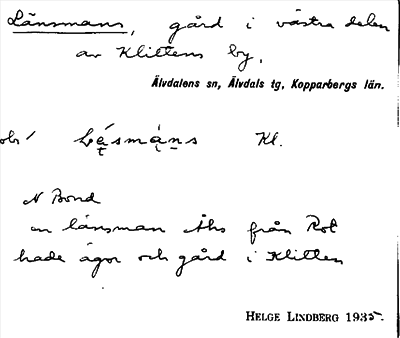 Länsmans, gård i västra delen
av Klittens by.
Älvdalens sn, Älvdals tg, Kopparbergs län.
Kl.
N Bond
en länsman Åhs från Rot
hade ägor och gård i Klitten
HELGE LINDBERG 1935.